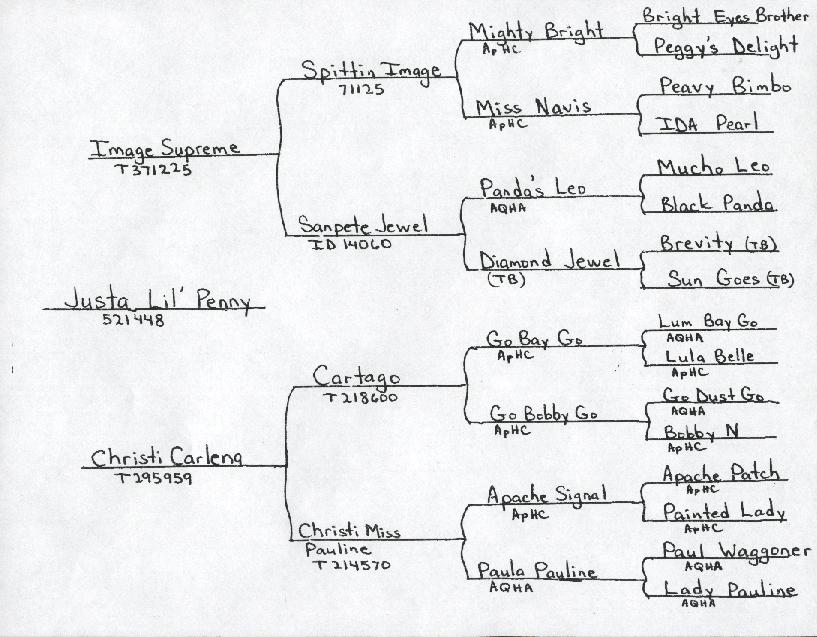 Bright Eyes Brother
Mighty Bright
ApHC
Peggy's Delight
Spittin Image
71125
Peavy Bimbo
Miss Navis
ApHC
IDA Pearl
Image Supreme
T371225
Mucho Leo
Panda's Leo
AQHA
Black Panda
Sanpete Jewel
ID 14060
Brevity (TB)
Diamond Jewel
(TB)
Sun Goes (TB)
Justa Lil' Penny
521448
Lum Bay Go
AQHA
Go Bay Go
ApHC
Lula Belle
ApHC
Cartago
T218600
Go Dust Go
AQHA
Go Bobby Go
ApHC
Bobby N
ApHC
Christi Carlena
T295959
Apache Patch
ApHC
Apache Signal
ApHC
Painted Lady
ApHC
Christi Miss
Pauline
T214570
Paul Waggoner
AQHA
Paula Pauline
AQHA
Lady Pauline
AQHA